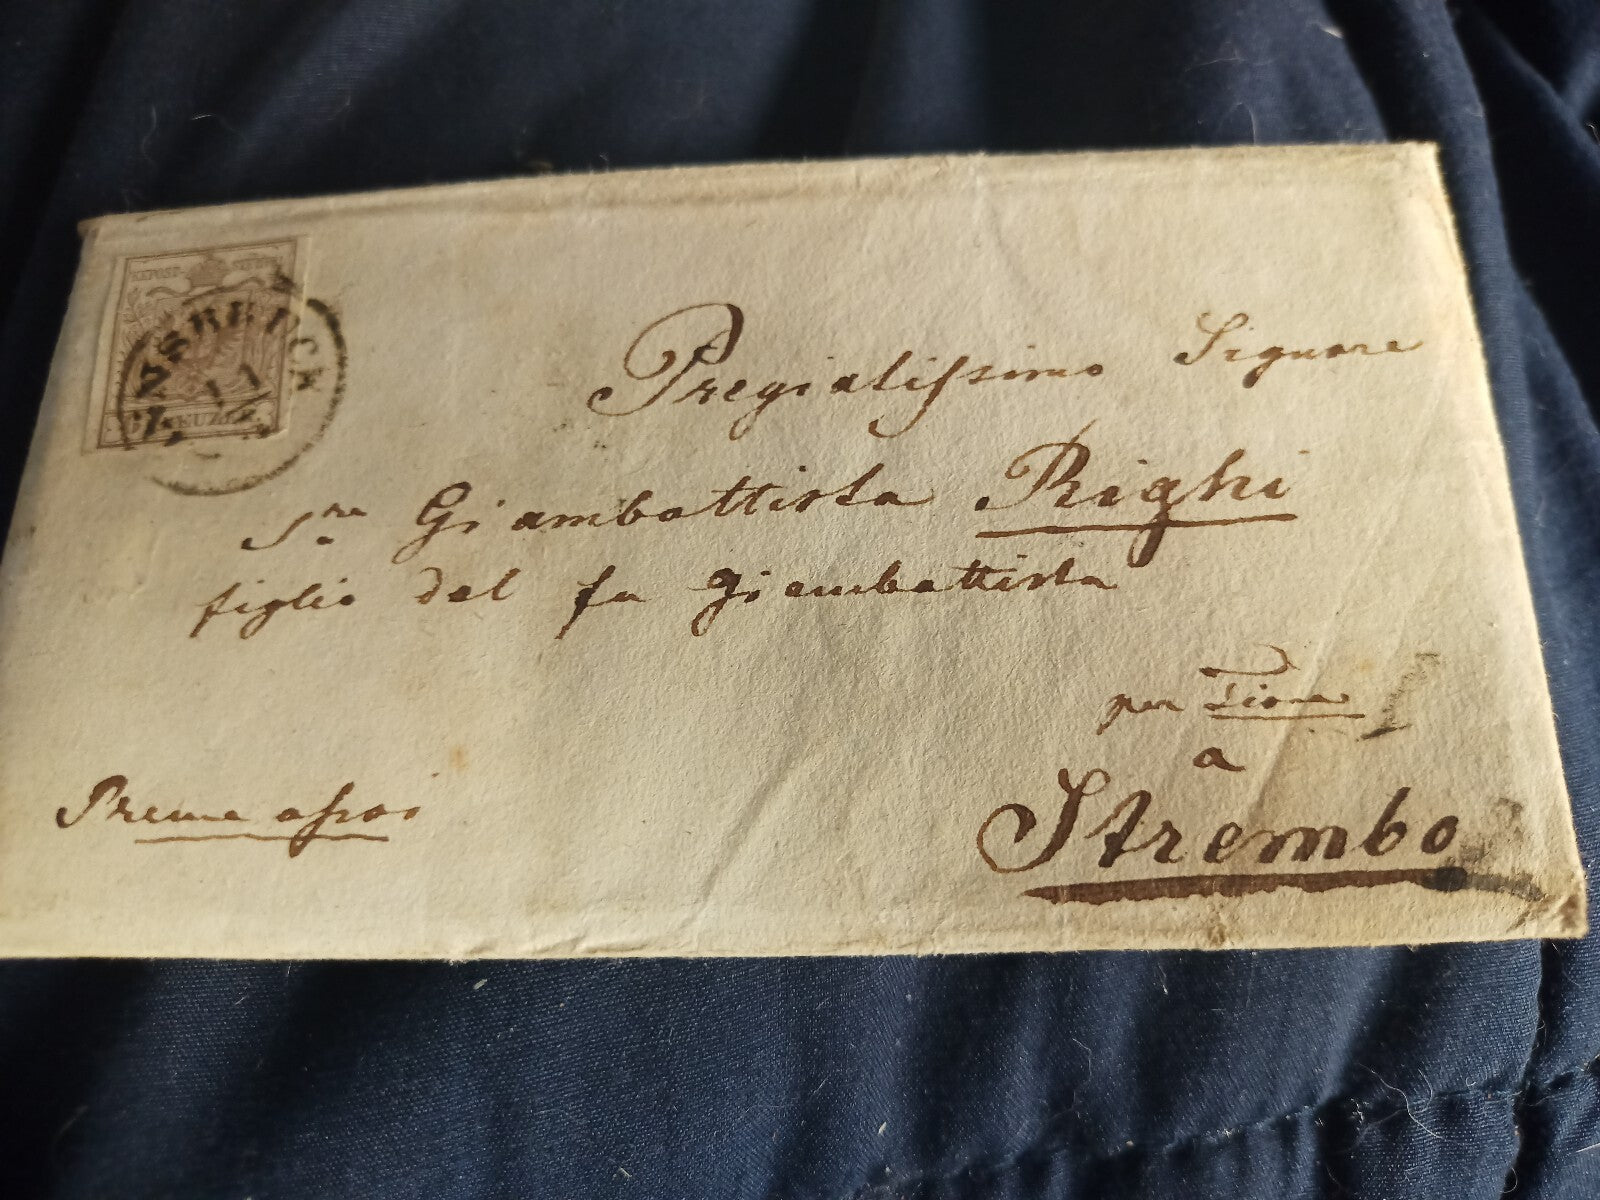 KKPOST-STEMPEL
INNSBRUCK
11
KREUZER
Pregiatissimo Signore
Sre Giambattista Righi
figlio del fu Giambattista
per Tione
a
Strembo
Preme assai